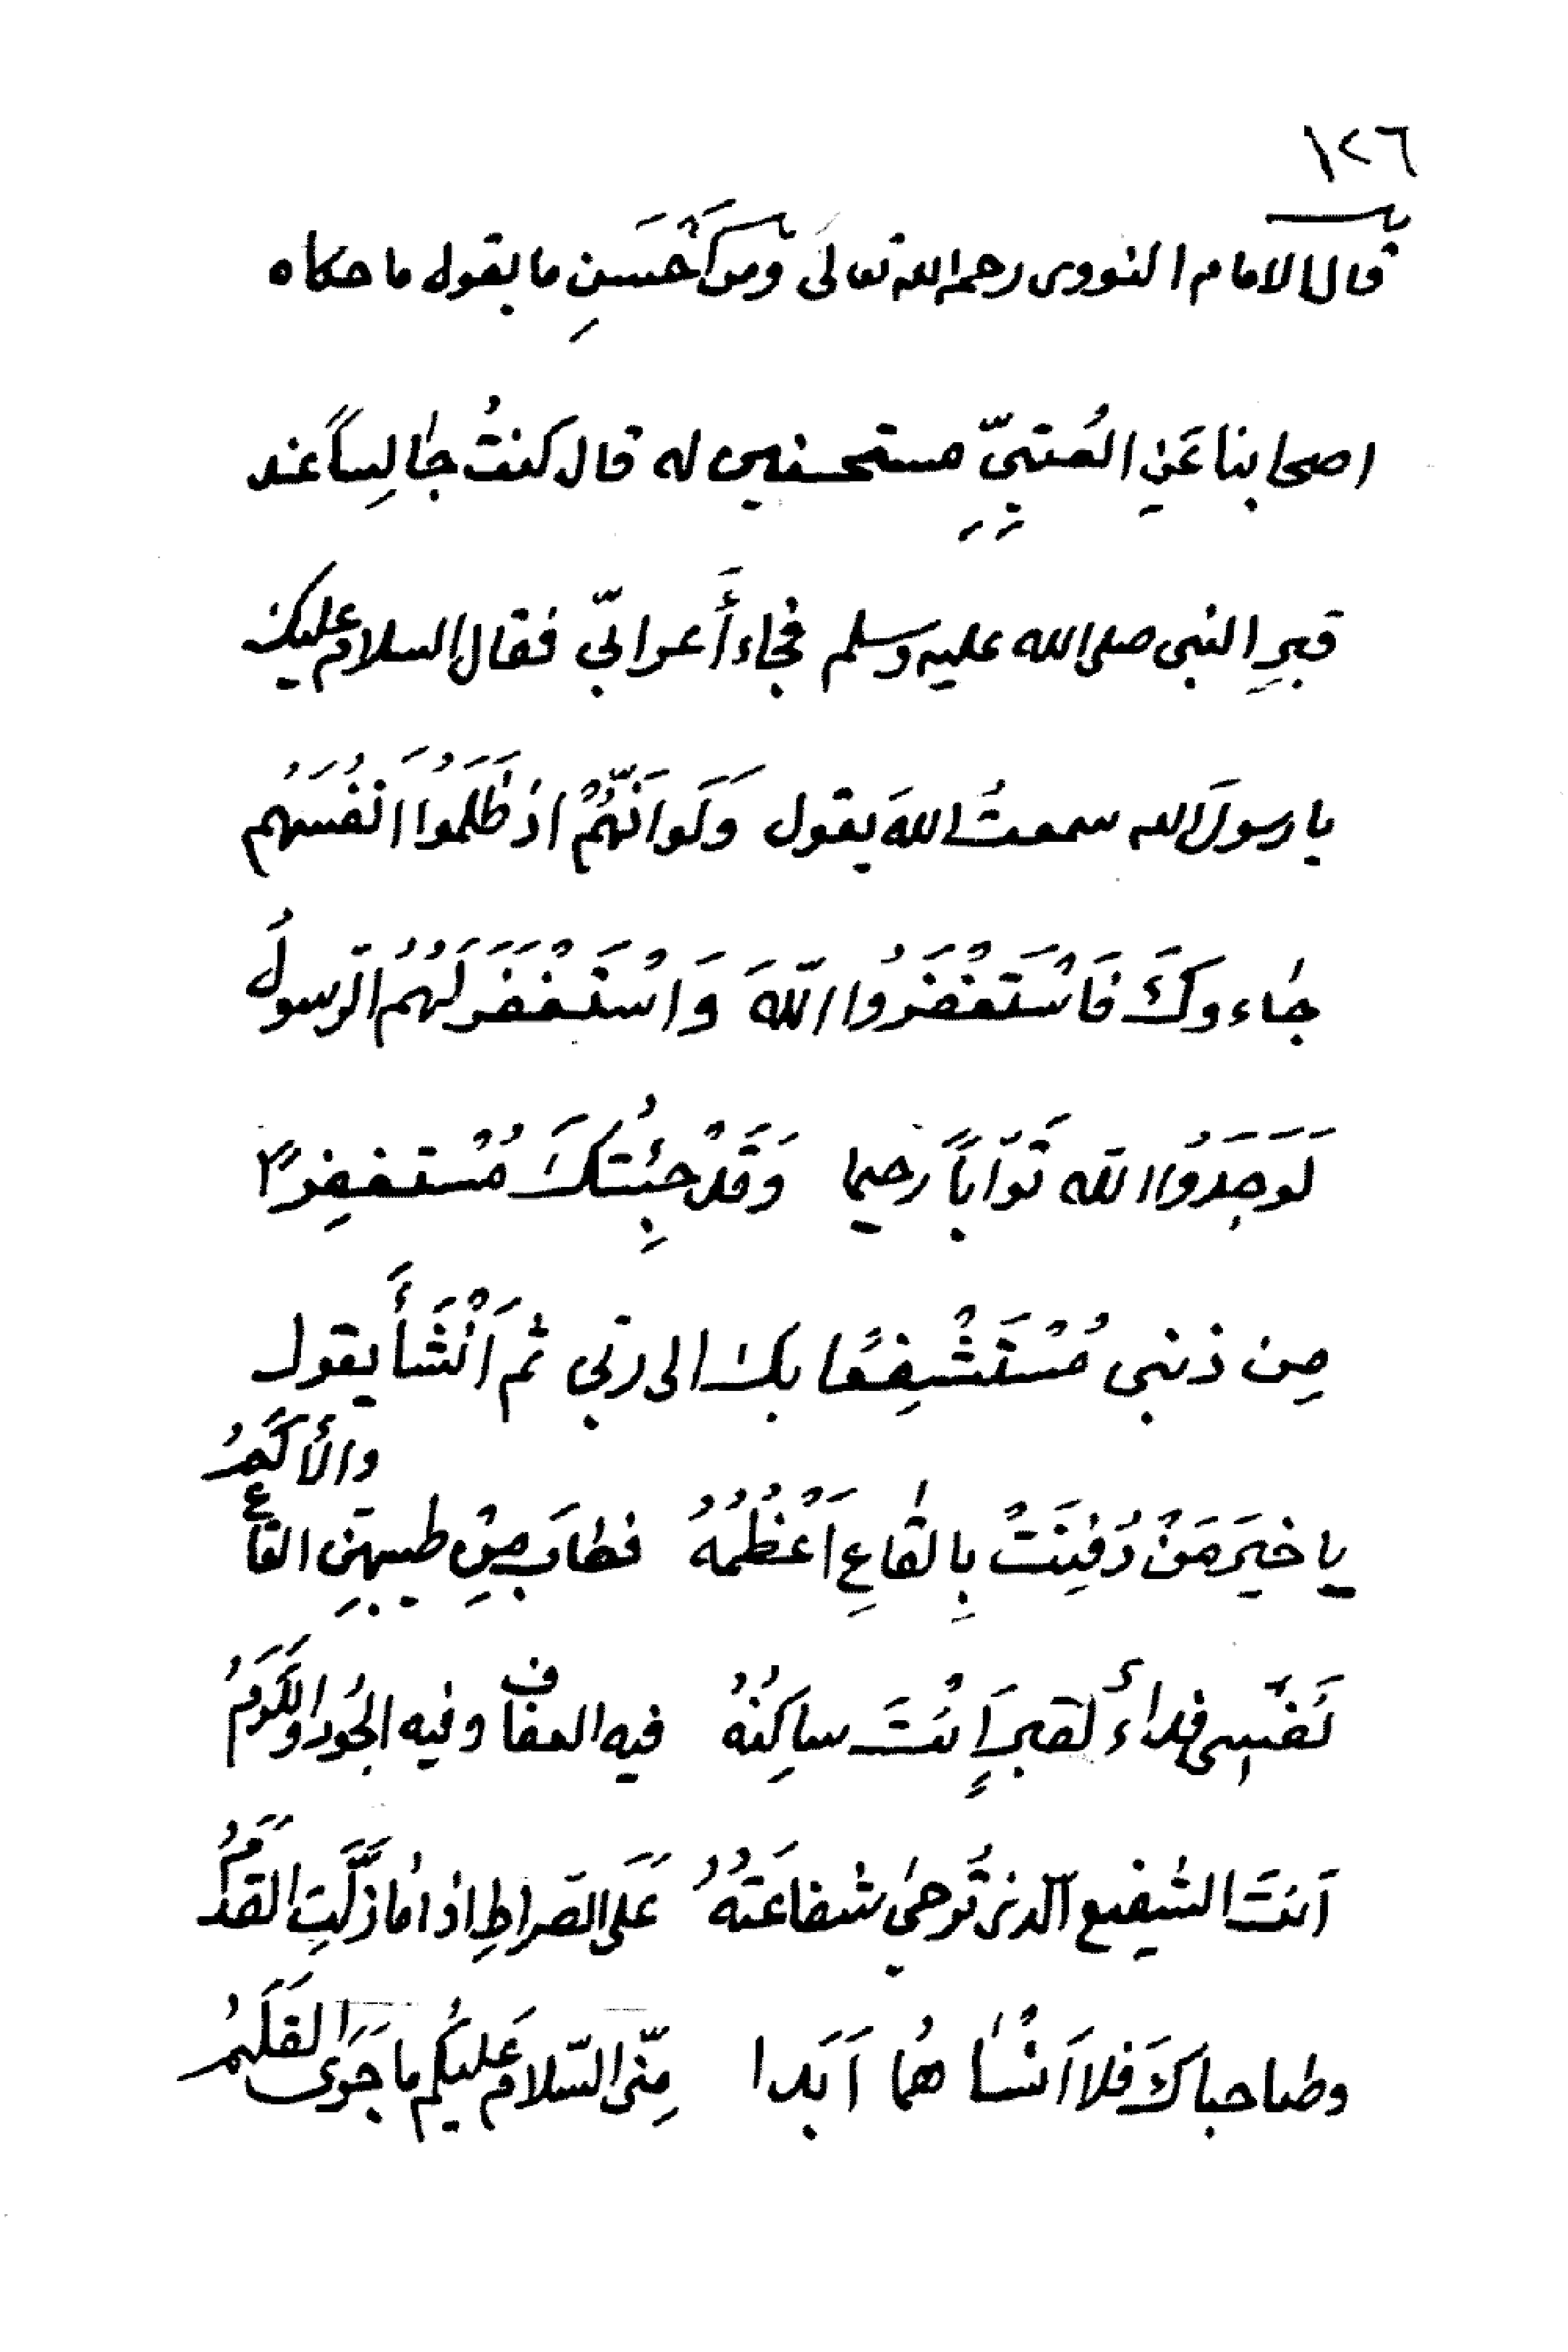 ١٢٦
قال الامام النووى رحمه الله تعالى ومن أَحْسَنِ ما يقول ما حكاه
اصحابنا عَنِ العُتبِىِّ مستحسنين له قال كنتُ جَالِساً عند
قبرِ النبى صلى الله عليه وسلم فجاء أَعرابىّ فقال السلام عليك
يا رسولَ الله سمعتُ اللهَ يقول وَلَو اَنَّهُمْ اذ ظَلَمُوا اَنفُسَهُم
جَاءوكَ فَاسْتَغْفَرُوا اللّهَ وَاسْتَغْفَرَ لَهُمُ الرّسولُ
لَوَجَدَوُا اللّه تَوّاباً رحيما وَقَدْ جِئْتُكَ مُسْتغفِرًا
مِن ذنبى مُسْتَشْفِعًا بك الى ربّى ثم اَنْشَأَ يقول
يا خيرَ مَنْ دُفِنَتْ بِالقَاعِ اَعْظُمُهُ فطَابَ مِنْ طيبهِنِّ القاع
والأَكَمُ
نَفْسِى فداءٌ لقبرٍ اَنْتَ ساكِنُهُ فيه العفاف وفيه الجُود والكَرَمُ
اَنتَ الشفيع الّذى تُرجىٰ شفاعَتُهُ عَلَى الصّراطِ اذا مَا زَلَّتِ القَدَمُ
وصاحباكَ فلا اَنْسَاهُما اَبَدا مِنّى السّلام عَليكُم ما جَرَى القَلَمُ